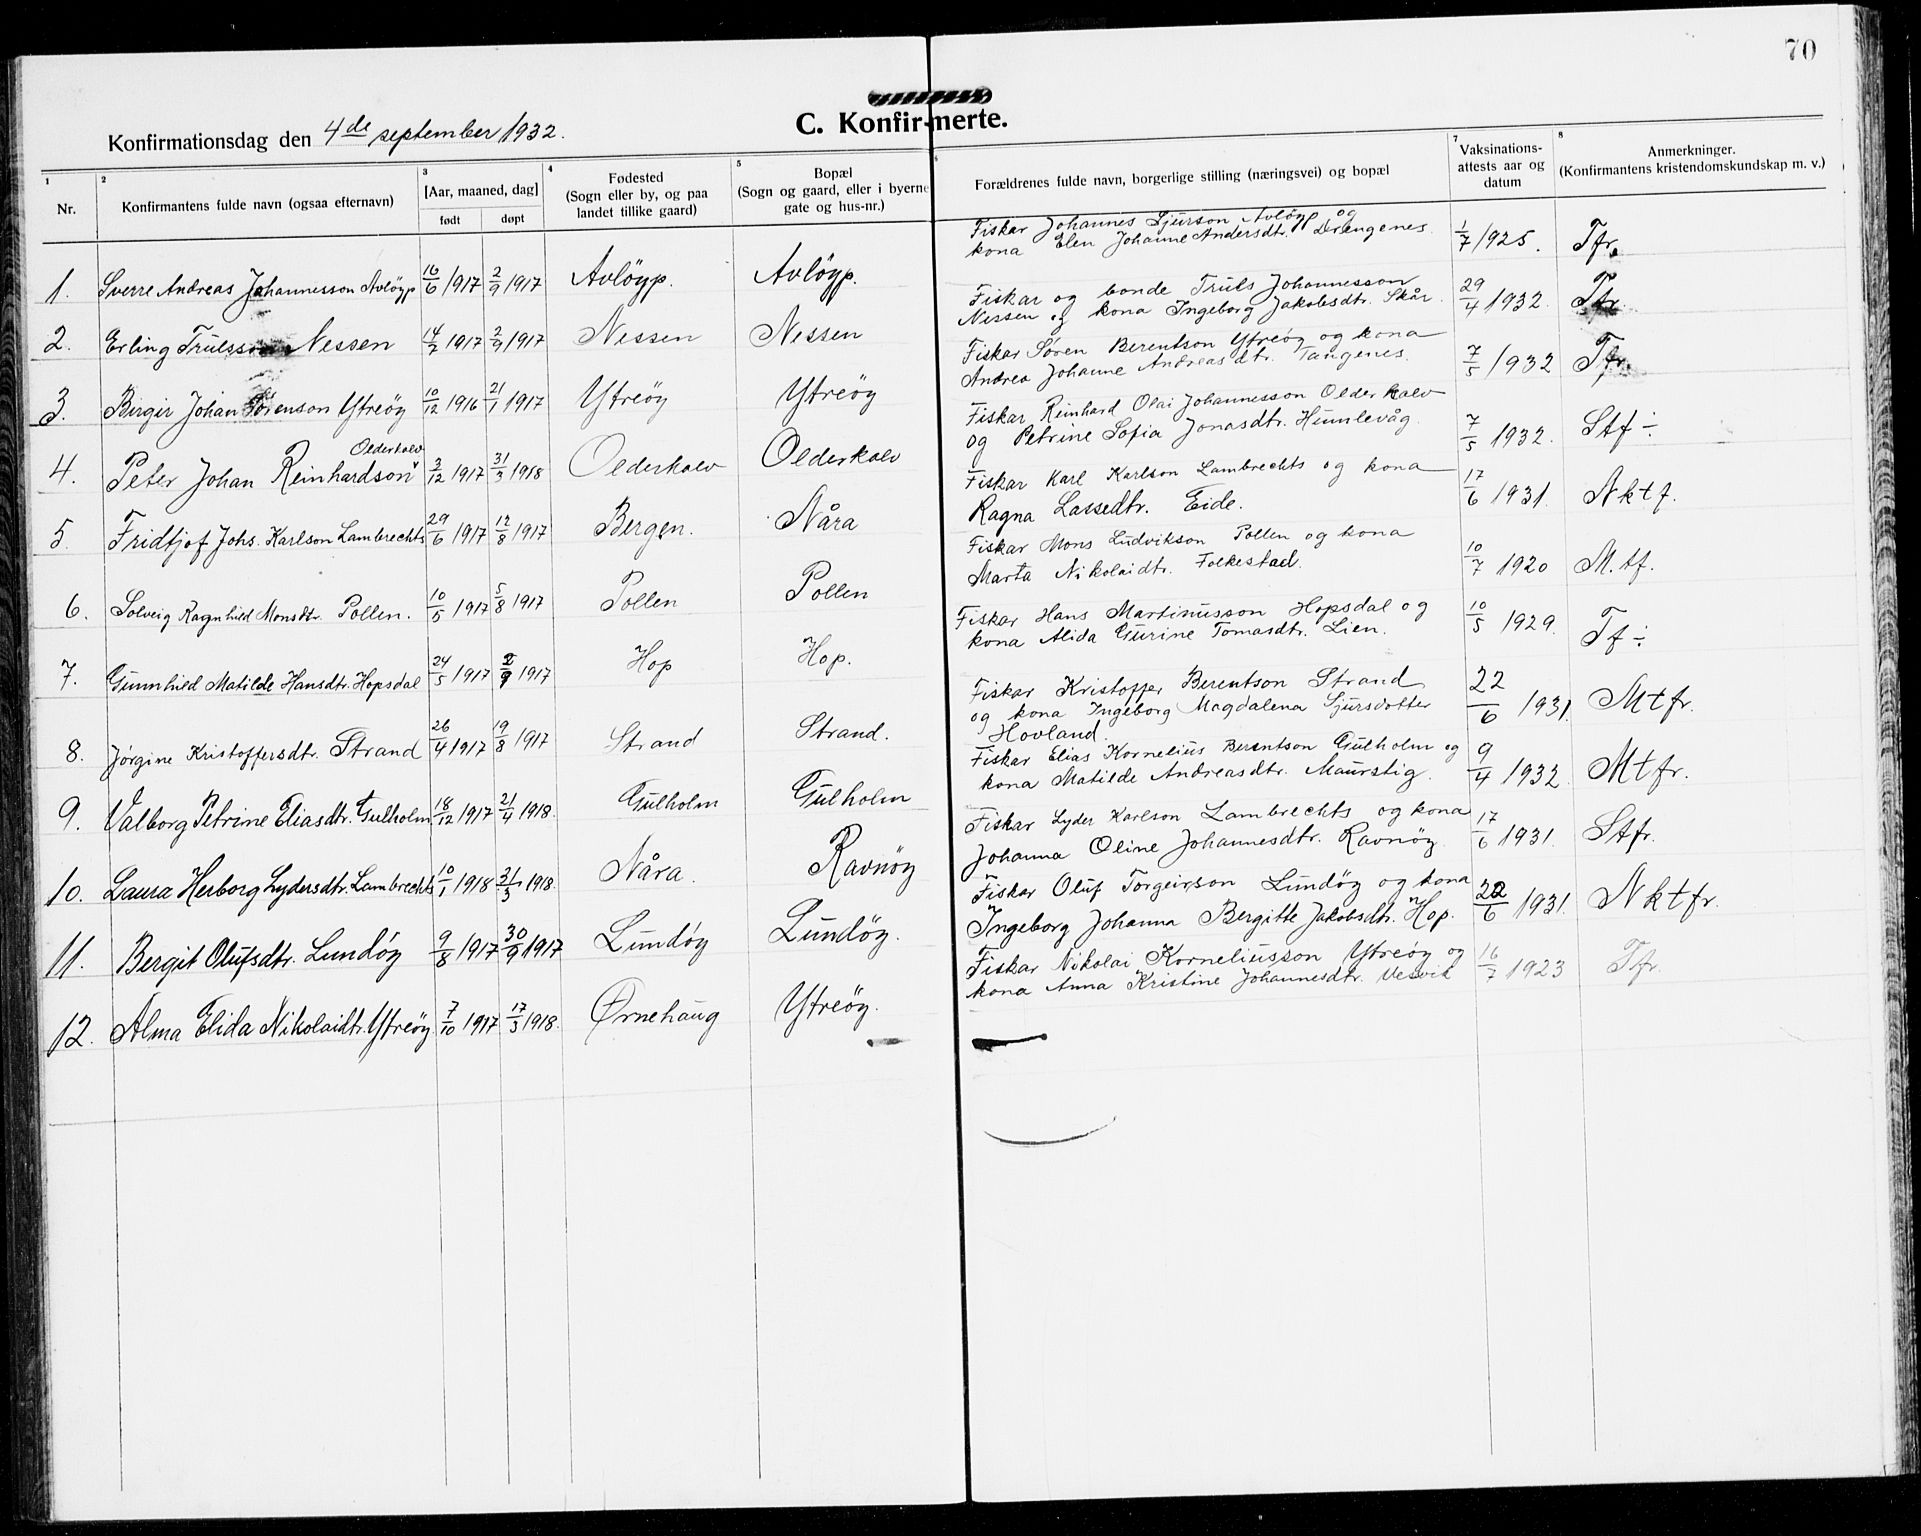 70
C. Konfirmerte.
Konfirmationsdag den 4de september 1932.
1 2 3 4 5 6 7 8
Nr.
Konfirmantens fulde navn (ogsaa efternavn)
[Aar, maaned, dag]
født døpt
Fødested
(Sogn eller by, og paa
landet tillike gaard)
Bopæl
(Sogn og gaard, eller i byerne
gate og hus-nr.)
Forældrenes fulde navn, borgerlige stilling (næringsvei) og bopæl
Vaksinations-
attests aar og
datum
Anmerkninger.
(Konfirmantens kristendomskundskap m. v.)
1. Sverre Andreas Johannesson Avlöyp 16/6 1917 2/9 1917 Avlöyp. Avlöyp.
Fiskar Johannes Sjurson Avlöyp og
kona Elen Johanne Andersdtr. Drængenes. 1/7 1925. Tfr.
2. Erling Trulsson Nessen 14/7 1917 2/9 1917 Nessen Nessen
Fiskar og bonde Truls Johannesson
Nessen og kona Ingeborg Jakobsdtr. Skår. 29/4 1932. Tfr
3. Birger Johan Sørenson Ytreöy 10/12 1916 21/1 1917 Ytreöy Ytreöy
Fiskar Søren Berentson Ytreöy og kona
Andrea Johanne Andreasdtr. Tangenes. 7/5 1932 Tfr.
Olderkalv
4. Peter Johan Reinhardson 2/12 1917 31/3 1918 Olderkalv Olderkalv
Fiskar Reinhard Olai Johannesson Olderkalv
og Petrine Sofia Jonasdtr. Humlevåg. 7/5 1932. Stf ÷
5. Fridtjof Johs. Karlson Lambrechts 29/6 1917 12/8 1917 Bergen. Nåra
Fiskar Karl Karlson Lambrechts og kona
Ragna Lassedtr. Eide. 17/6 1931. Nktf.
6. Solveig Ragnhild Monsdtr. Pollen. 10/5 1917 5/8 1917 Pollen Pollen
Fiskar Mons Ludvikson Pollen og kona
Marta Nikolaidtr. Folkestad. 10/7 1920 M.tf.
7. Gunnhild Matilde Hansdtr. Hopsdal 24/5 1917 2/9 1917 Hop Hop.
Fiskar Hans Martinusson Hopsdal og
kona Alida Gurine Tomasdtr. Lien. 10/5 1929. Tf ÷
8. Jørgine Kristoffersdtr. Strand 26/4 1917 19/8 1917 Strand Strand.
Fiskar Kristoffer Berentson Strand
og kona Ingeborg Magdalena Sjursdotter
Hovland. 22/6 1931. Mtfr.
9. Valborg Petrine Eliasdtr. Gulholm 18/12 1917 21/4 1918. Gulholm Gulholm
Fiskar Elias Kornelius Berentson Gulholm og
kona Matilde Andreasdtr. Maurstig. 9/4 1932. Mtfr.
10. Laura Herborg Lydersdtr. Lambrechts 10/1 1918 31/3 1918. Nåra. Ravnöy
Fiskar Lyder Karlson Lambrechts og kona
Johanna Oline Johannesdtr. Ravnöy. 17/6 1931. Stfr.
11. Bergit Olufsdtr. Lundöy 9/8 1917 30/9 1917 Lundöy Lundöy.
Fiskar Oluf Torgeirson Lundöy og kona
Ingeborg Johanna Bergitte Jakobsdtr. Hop. 22/6 1931. Nktfr.
12. Alma Elida Nikolaidtr. Ytreöy 7/10 1917 17/3 1918. Ørnehaug Ytreöy.
Fiskar Nikolai Korneliusson Ytreöy og
kona Anna Kristine Johannesdtr. Vesvik 16/7 1923 Tfr.